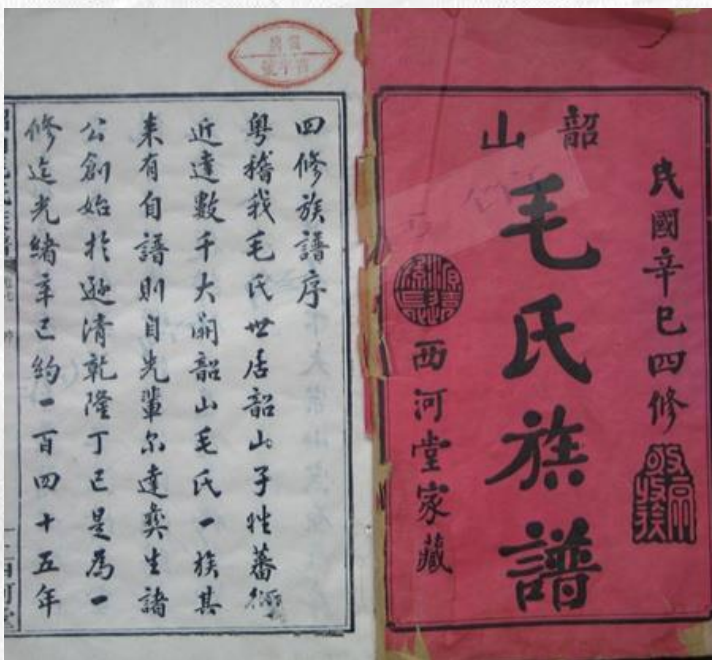 民國辛巳四修
敬宗收族
韶山
毛氏族譜
西河堂家藏
四修族譜序
粤稽我毛氏世居韶山子姓蕃衍
近達數千大開韶山毛氏一族其
来有自譜則自先輩尔達奕生諸
公創始於遜清乾隆丁巳是為一
修迄光緒辛巳約一百四十五年